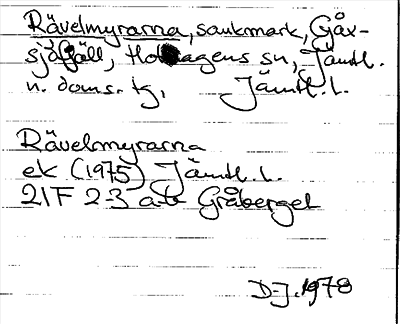 Rävelmyrarna, sankmark, Gåx-
sjöfjäll, Hotagens sn, Jämtl.
n. doms. tg, Jämtl. l.
Rävelmyrarna
ek (1975) Jämtl. l.
21F 2-3 a-b Gråberget
D-J. 1978